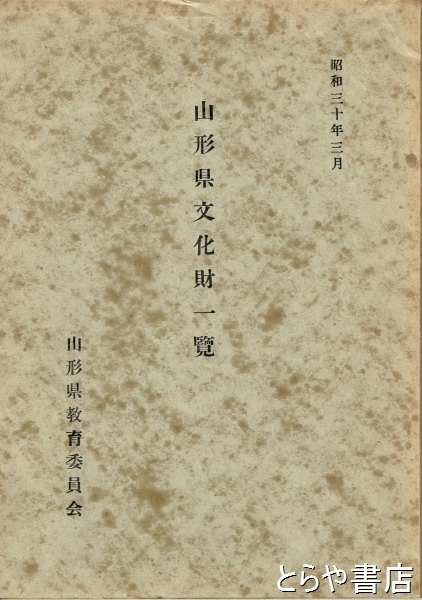 昭和三十年三月
山形県文化財一覽
山形県教育委員会
とらや書店